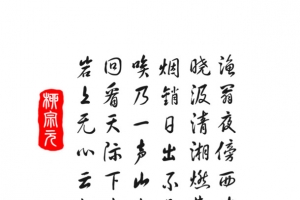 渔翁夜傍西
晓汲清湘燃
烟销日出不
唉乃一声山
回看天际下
岩上无心云
柳宗元